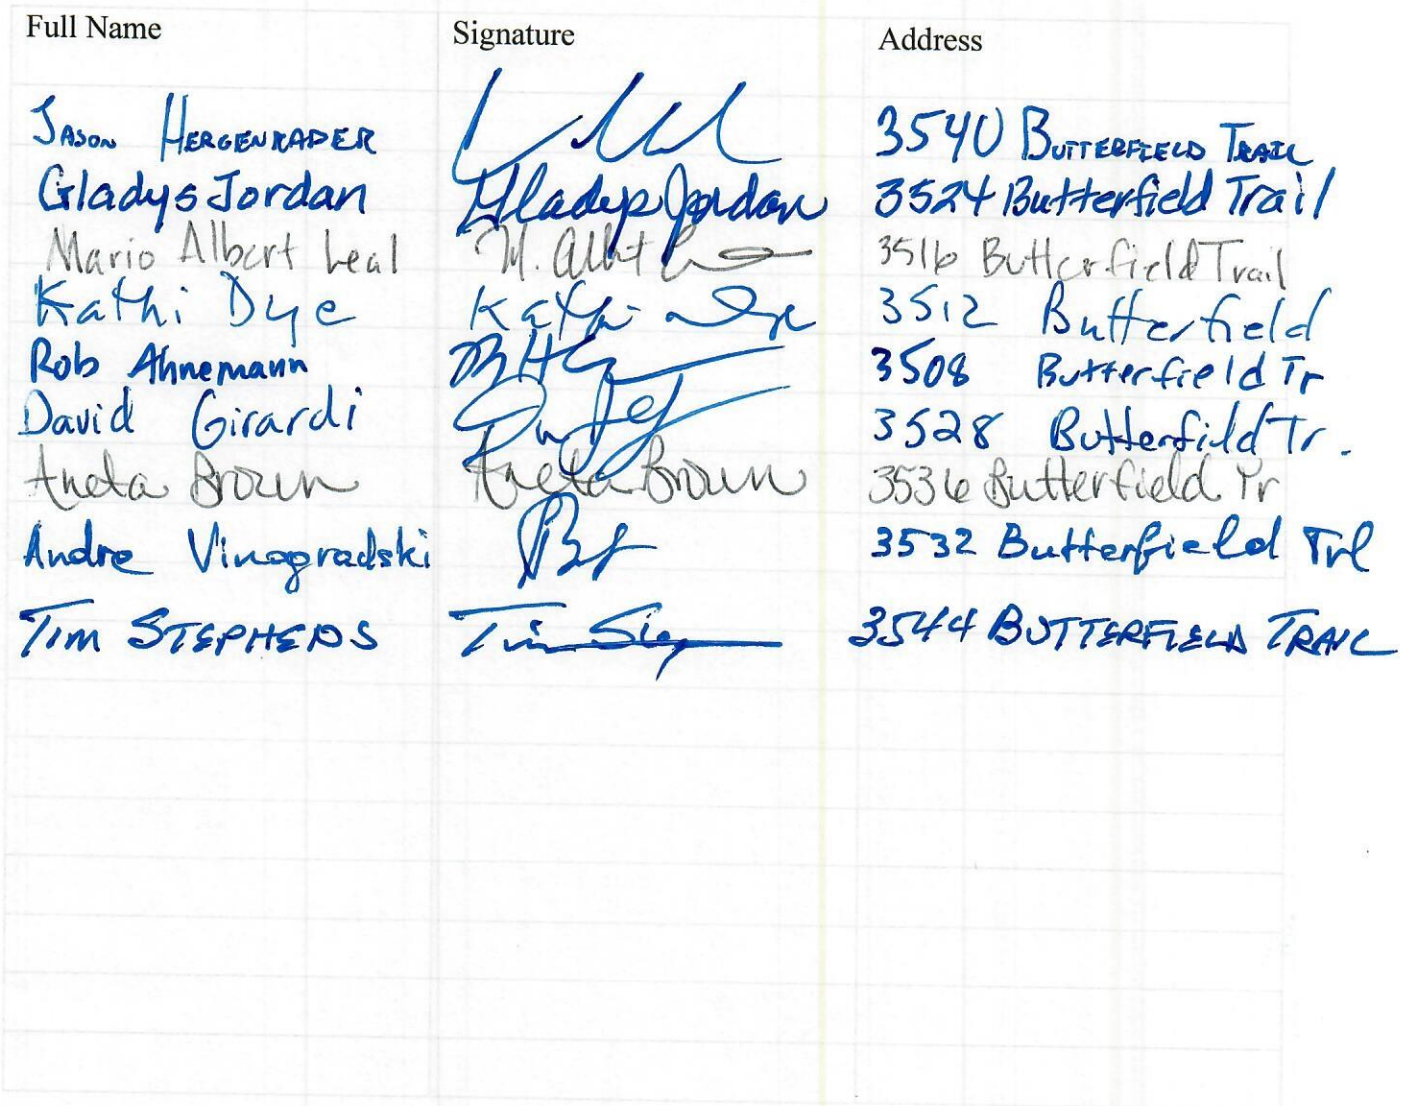 Full Name Signature Address
JASON HERGENRADER 3540 BUTTERFIELD TRAIL
Gladys Jordan Gladys Jordan 3524 Butterfield Trail
Mario Albert Leal M. Albert 3516 Butterfield Trail
Kathi Dye Kathi Dye 3512 Butterfield
Rob Ahnemann 3508 Butterfield Tr
David Girardi 3528 Butterfild Tr.
Aneta Brown Aneta Brown 3536 Butterfield Tr
Andre Vinogradski 3532 Butterfield Trl
TIM STEPHENS Tim 3544 BUTTERFIELD TRAIL